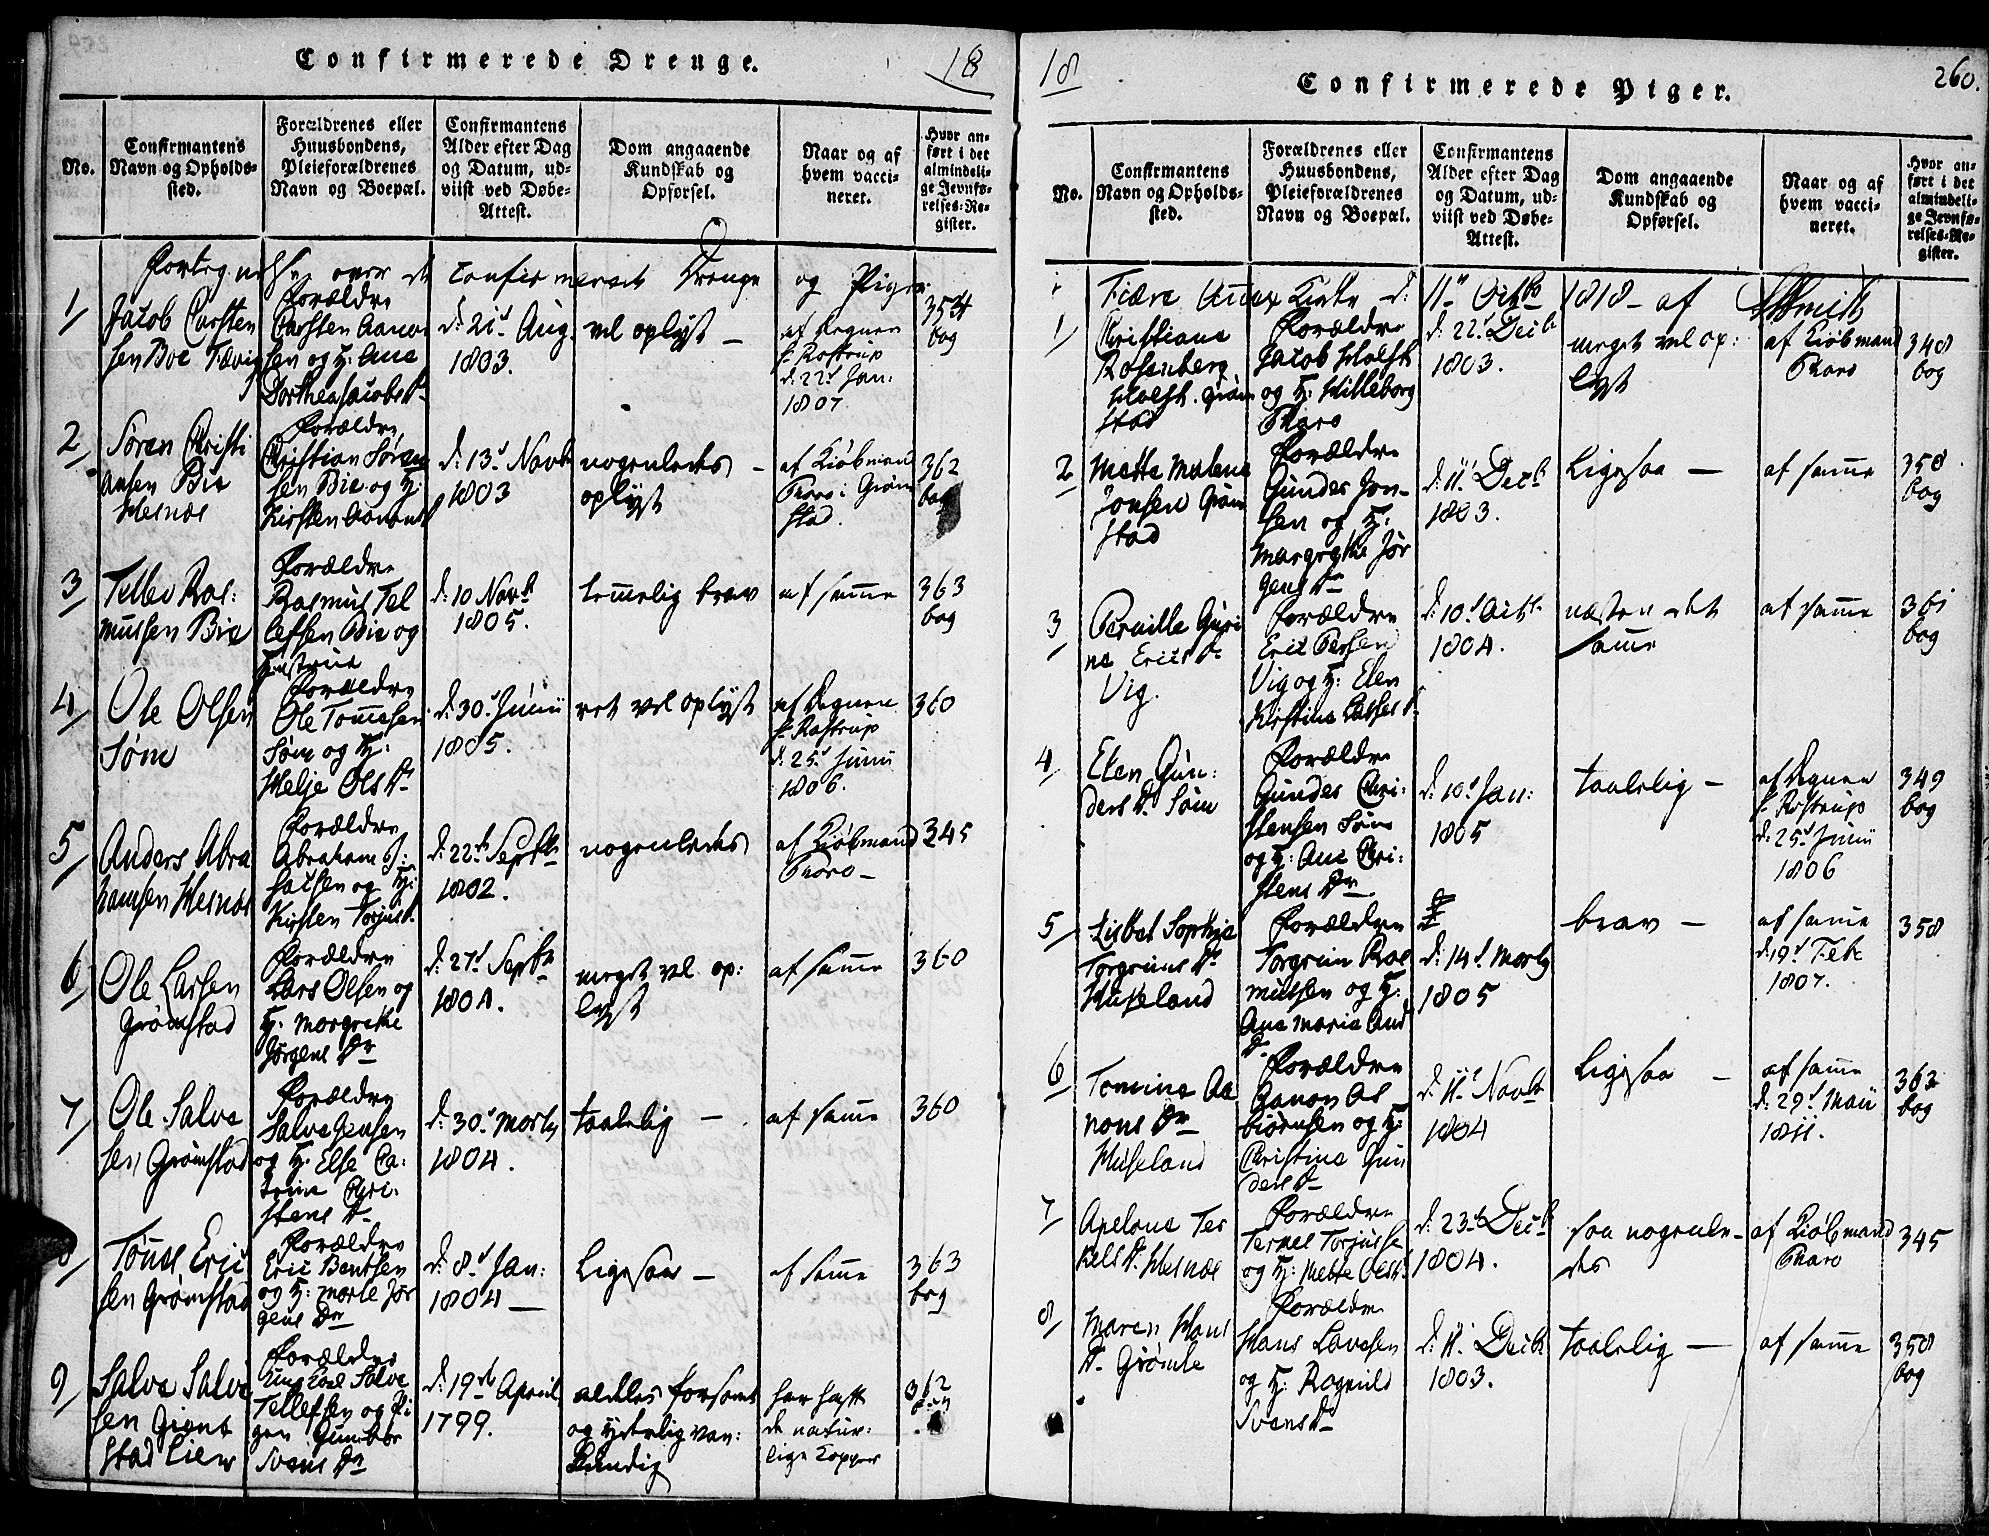 Confirmerede Drenge.
18
No.
Confirmantens
Navn og Opholds-
sted.
Forældrenes eller
Huusbondens,
Pleieforældrenes
Navn og Boepæl.
Confirmantens
Alder efter Dag
og Datum, ud-
viist ved Døbe-
Attest.
Dom angaaende
Kundskab og
Opførsel.
Naar og af
hvem vacci-
neret.
Hvor an-
ført i det
almindeli-
ge Jevnfø-
relses-Re-
gister.
Fortegnelse over de Confirmerede Drenge og Piger
1/
Jacob Carsten
sen Boe Fævig
Forældre
Carsten Aanon
sen og H: Ane
Dorthea Jacobs Dr
d: 21d Aug.
1803.
vel oplyst –
af Degnen
Hr Rostrup
d: 22d Jan:
1807
354
bag
2/
Søren Christi
ansen Bie
Hesnæs
Forældre
Christian Søren
sen Bie og H:
Kirsten Aanons
d: 13d Novb
1803
nogenledes –
oplyst
af Kiøbmand
Tharo i Grøm
stad.
362
bag
3/
Tellev Ras:
mussen Bie
Forældre
Rasmus Tel
lefsen Bie og
Hustrue
d: 10 Novb
1805.
temmelig brav
af samme
363
bag
4/
Ole Olsen
Søm
Forældre
Ole Tommesen
Søm og H:
Helje Ols Dr
d: 30d Junii
1805.
ret vel oplyst
af Degnen
Hr Rostrup
d: 25d Junii
1806.
360
5/
Anders Abra
hamsen Hesnæs
Forældre
Abraham
Isacsen og H:
Kirsten Torjus Dr
d: 22d Septbr
1802.
nogenledes
af Kiøbmand
Tharo –
345
6/
Ole Larsen
Grømstad
Forældre
Lars Olsen og
H: Margrethe
Jørgens Dr
d: 27d Septbr
1804.
meget vel op:
lyst
af samme
360
7/
Ole Salve
sen Grømstad
Forældre
Salve Jensen
og H: Else Ca:
trine Chri:
stens Dr
d: 30d Marty
1804.
taalelig –
af samme
360
8/
Tønnes Eric
sen Grømstad
Forældre
Eric Bentsen
og H: Marte Jør
gens Dr
d: 8d Jan:
1804 –
Ligesaa –
af samme
363
bag
9/
Salve Salve
sen Grøm
stad Lien
Forældre
Ung Karl Salve
Tellefsen og Pi
gen Gunbor
Svens Dr
d: 19d April
1799.
aldeles forsømt
og yderlig van:
kundig
har haft
de natur:
lige Kopper
362
bag
18
Confirmerede Piger.
260.
No.
Confirmantens
Navn og Opholds-
sted.
Forældrenes eller
Huusbondens,
Pleieforældrenes
Navn og Boepæl.
Confirmantens
Alder efter Dag
og Datum, ud-
viist ved Døbe-
Attest.
Dom angaaende
Kundskab og
Opførsel.
Naar og af
hvem vacci-
neret.
Hvor an-
ført i det
almindeli-
ge Jevnfø-
relses-Re-
gister.
i Fiære Annex Kirke d: 11te Octb 1818 – af Smith
1/
Christiana
Rosenberg
Holst. Grøm
stad
Forældre
Jacob Holst
og H: Hilleborg
Tharo
d: 22d Decb
1803.
meget vel op:
lyst
af Kiøbmand
Tharo
348
bag
2/
Mette Malene
Jonsen Grøm
stad
Forældre
Gunder Jon-
sen og H:
Margrethe Jør
gens Dr
d: 11d Decb
1803.
Ligesaa –
af samme
358
bag
3/
Pernille Guri
ne Erics Dr
Vig.
Forældre
Eric Persen
Vig og H: Elen
Kirstine Lasses Dr
d: 10d Octb
1804.
næsten det
samme
af samme
361
bag
4/
Elen Gun:
ders Dr Søm
Forældre
Gunder Chri:
stensen Søm
og H: Ane Chri:
stens Dr
d: 10d Jan:
1805
taalelig –
af Degnen
Hr Rostrup
d: 25d Junii
1806
349
bag
5/
Lisbet Sophie
Torgrims Dr
Huseland
Forældre
Torgrim Ras
mussen og H:
Ane Marie And
Dr
d: 14d Marty
1805
brav –
af samme
d: 19d Feb
1807.
358
6/
Tomine Aa
nons Dr
Huseland
Forældre
Aanon As
biørnsen og H:
Christine Gun
ders Dr
d: 11d Novb
1804
Ligesaa –
af samme
d: 29d Maii
1811.
362
bag
7/
Apelone Ter
kels Dr Hesnæs
Forældre
Terkel Torjusse
og H: Mette Ols
d: 23d Decb
1804.
saa nogenle-
des
af Kiøbmand
Tharo
345
8/
Maren Hans
Dr Grømle
Forældre
Hans Lavesen
og H: Ragnild
Svens Dr
d: 11 Decb
1803.
taalelig –
af samme
358
bag